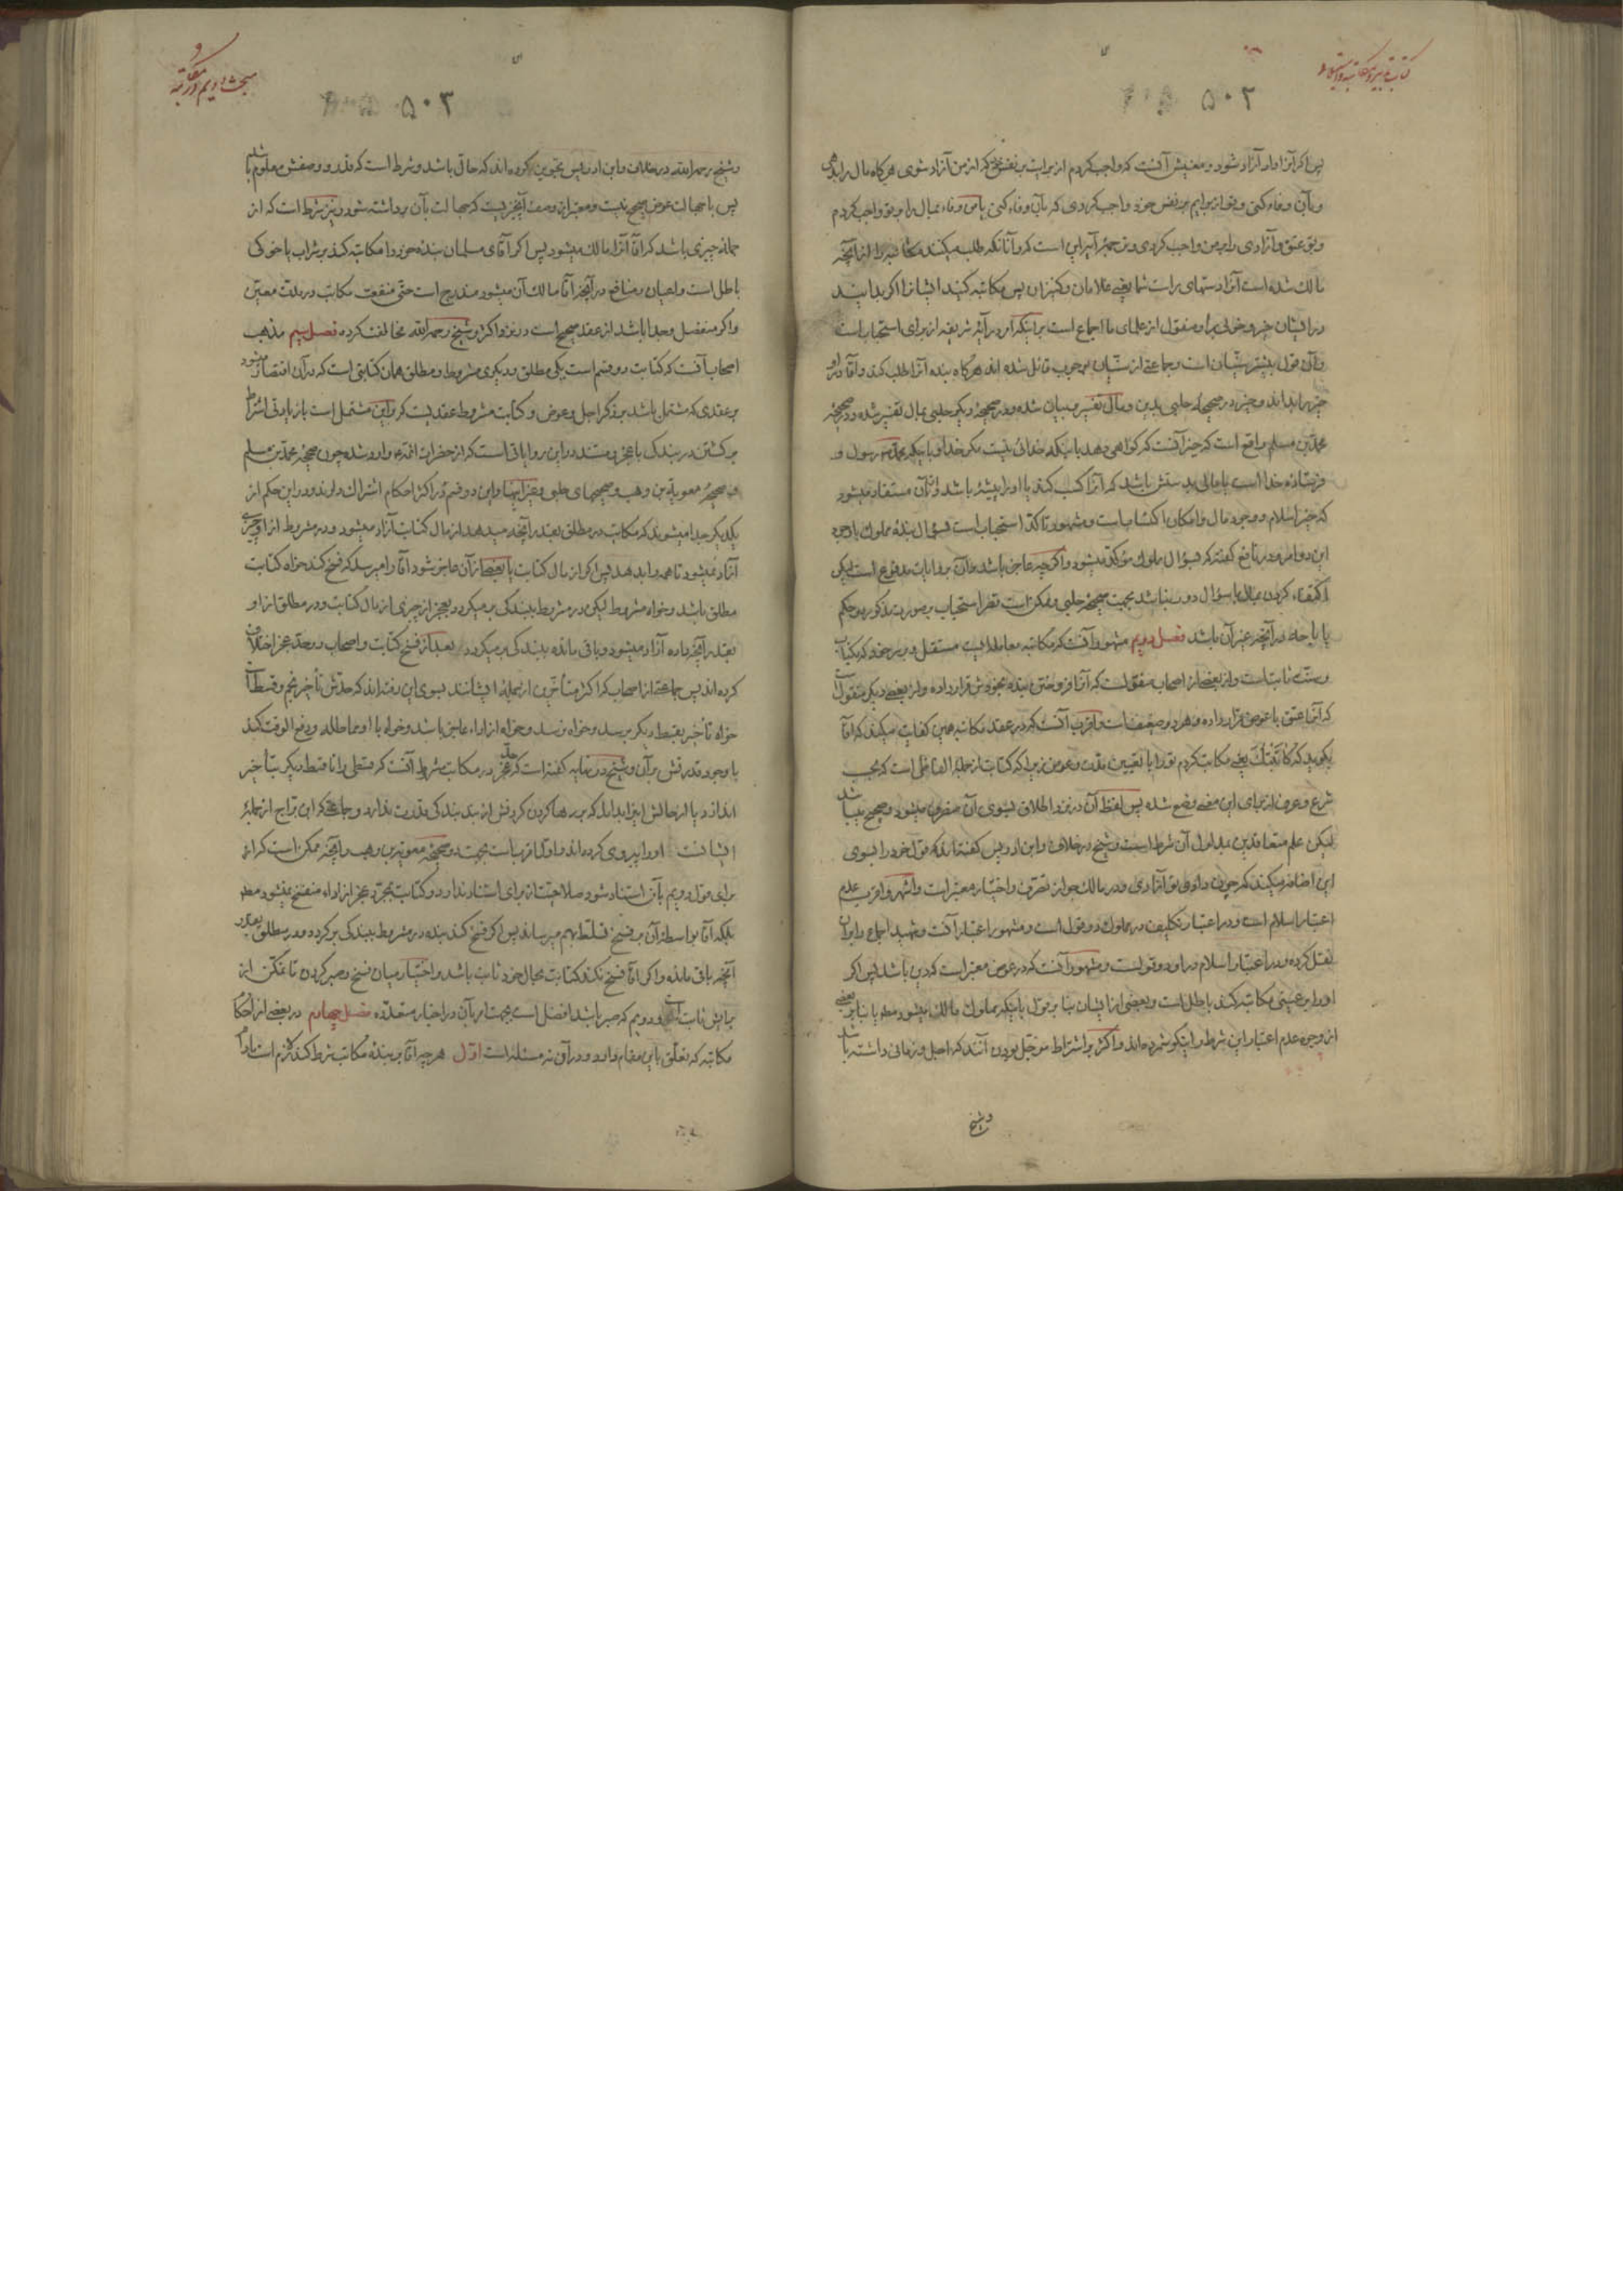 ۵۰۲
پس اگر آنرا دادی آزاد شوی و معنیش آنست که واجب کردم از برایت بر نفس خود که از من آزاد شوی هرگاه مال را بدهی
و بآن وفاء کنی و تو از برایم بر نفس خود واجب کردی که بآن وفاء کنی یا من وفاء بمال را بر تو واجب کردم
و تو عتق و آزادی را بر من واجب کردی و ترجمهٔ آیه این است که و آنانکه طلب میکنند مکاتبه را از آنچه
مالک شده است آنرا دستهای راست شما یعنی غلامان و کنیزان پس مکاتبه کنید ایشانرا اگر بدانید
در ایشان خیر و خوبی را و منقول از علمای ما اجماع است بر اینکه امر در آیهٔ شریفه از برای استحباب است
و آن قول بیشتر سنّیان است و جماعتی از سنّیان بوجوب قائل شده‌اند هرگاه بنده آنرا طلب کند و آقا در او
خیر را بداند و خیر در صحیحهٔ حلبی بدین و مال تفسیر و بیان شده و در صحیحهٔ دیگر حلبی بمال تفسیر شده و در صحیحهٔ
محمّد بن مسلم واقع است که خیر آنست که گواهی دهد باینکه خدائی نیست مگر خدا و باینکه محمّد رسول و
فرستادهٔ خدا است یا مالی بدستش باشد که آنرا کسب کند یا او را پیشهٔ باشد و از آن مستفاد میشود
که خیر اسلام و وجود مال و امکان اکتساب است و مشهور تأکّد استحباب است بسؤال بندهٔ مملوک با وجود
این دو امر و در نافع گفته که بسؤال مملوک مؤکّد میشود و اگر چه عاجز باشد و آن بروایات مدفوع است لیکن
اکتفاء کردن بمال با سؤال دور نباشد بجهت صحیحهٔ حلبی و ممکن است نفی استحباب بصورت مذکوره و حکم
باباحه در آنچه غیر آن باشد فصل دویم مشهور آنست که مکاتبه معاملهٔ ایست مستقل و بر سر خود که بکتاب
و سنّت ثابت است و از بعضی از اصحاب منقولست که آنرا فروختن بنده بخودش قرار داده و از بعضی دیگر منقول است
که آنرا عتق با عوض قرار داده و هر دو ضعیف است و اقرب آنست که در عقد مکاتبه همین کفایت میکند که آقا
بگوید که کاتبتک یعنی مکاتبت کردم تو را با تعیین مدّت و عوض زیرا که کتابت از جملهٔ الفاظی است که بحسب
شرع و عرف از برای این معنی وضع شده پس لفظ آن در نزد اطلاق بسوی آن منصرف میشود و صحیح میباشد
لیکن علم متعاقدین بمدلول آن شرط است و شیخ در خلاف و ابن ادریس گفته‌اند که قول خود را بسوی
این اضافه میکند که چون دادی تو آزادی و در مالک جواز تصرّف و اختیار معتبر است و اشهر و اقرب عدم
اعتبار اسلام است و در اعتبار تکلیف در مملوک دو قول است و مشهور اعتبار آنست و شهید اجماع را بر آن
نقل کرده و در اعتبار اسلام در او دو قولست و مشهور آنست که در عوض معتبر است که دین باشد پس اگر
او را بر عینی مکاتبه کند باطل است و بعضی از ایشان بنا بر قول باینکه مملوک مالک میشود مطلقا یا بنا بر بعضی
از وجوه عدم اعتبار این شرط را نیکو شمرده‌اند و اکثر بر اشتراط مؤجّل بودن آنند که اجل و زمانی داشته باشد
و شیخ
۵۰۳
و شیخ رحمه الله در خلاف و ابن ادریس تجویز کرده‌اند که حالّ باشد و شرط است که قدر و وصفش معلوم باشد
پس با جهالت عوض صحیح نیست و معتبر از وصف آنچیزیست که جهالت بآن برداشته شود و نیز شرط است که از
جمله چیزی باشد که آقا آنرا مالک میشود پس اگر آقای مسلمان بندهٔ خود را مکاتبه کند بر شراب یا خوکی
باطل است و اعیان و منافع در آنچه آقا مالک آن میشود مندرج است حتّی منفعت مکاتب در مدّت معیّن
و اگر منفصل و جدا باشد از عقد صحیح است در نزد اکثر و شیخ رحمه الله مخالفت کرده فصل سیم مذهب
اصحاب آنست که کتابت دو قسم است یکی مطلق و دیگری مشروط و مطلق همان کتابتی است که در آن اقتصار میشود
بر عقدی که مشتمل باشد بر ذکر اجل و عوض و کتابت مشروط عقدیست که بر این مشتمل است با زیادتی اشتراط
برگشتن در بندگی با عجز و مستند در این روایاتی است که از حضرات ائمّه ع وارد شده چون صحیحهٔ محمّد بن مسلم
و صحیحهٔ معویة بن وهب و صحیحهای حلبی و غیر اینها و این دو قسم در اکثر احکام اشتراک دارند و در این حکم از
یکدیگر جدا میشوند که مکاتب در مطلق بقدر آنچه میدهد از مال کتابت آزاد میشود و در مشروط از او چیزی
آزاد نمیشود تا همه را بدهد پس اگر از مال کتابت یا بعضی از آن عاجز شود آقا را میرسد که فسخ کند خواه کتابت
مطلق باشد و خواه مشروط لیکن در مشروط ببندگی برمیگردد بعجز از چیزی از مال کتابت و در مطلق از او
بقدر آنچه داده آزاد میشود و باقی مانده ببندگی برمیگردد بعد از فسخ کتابت و اصحاب در حدّ عجز اختلاف
کرده‌اند پس جماعتی از اصحاب که اکثر متأخّرین از جملهٔ ایشانند بسوی این رفته‌اند که حدّش تأخیر نجم و قسط است
خواه تأخیر بقسط دیگر برسد و خواه نرسد و خواه از اداء عاجز باشد و خواه با او مماطله و دفع الوقت کند
با وجود قدرتش بر آن و شیخ در نهایه گفته است که حدّ عجز در مکاتب مشروط آنست که قسطی را تا قسط دیگر بتأخیر
اندازد یا از حالش این را بداند که بر رها کردن گردنش از بند بندگی قدرت ندارد و جماعتی که ابن برّاج از جملهٔ
ایشانست او را پیروی کرده‌اند و اوّل اقرب است بجهت صحیحهٔ معویة بن وهب و آنچه ممکن است که از
برای قول دویم بآن استناد شود صلاحیّت از برای استناد ندارد و کتابت بمجرّد عجز از اداء منفسخ نمیشود مطلقا
بلکه آقا بواسطهٔ آن بر فسخ تسلّط بهم میرساند پس اگر فسخ کند بنده در مشروط ببندگی برگردد و در مطلق بقدر
آنچه باقی مانده و اگر آقا فسخ نکند کتابت بحال خود ثابت باشد و اختیار میان فسخ و صبر کردن تا تمکّن از
برایش ثابت است و دویم که صبر باشد افضل است بجهت امر بآن در اخبار متعدّده فصل چهارم در بعضی از احکام
مکاتبه که تعلّق باین مقام دارد و در آن نه مسئله است اوّل هر چه آقا بر بندهٔ مکاتب شرط کند لازم است